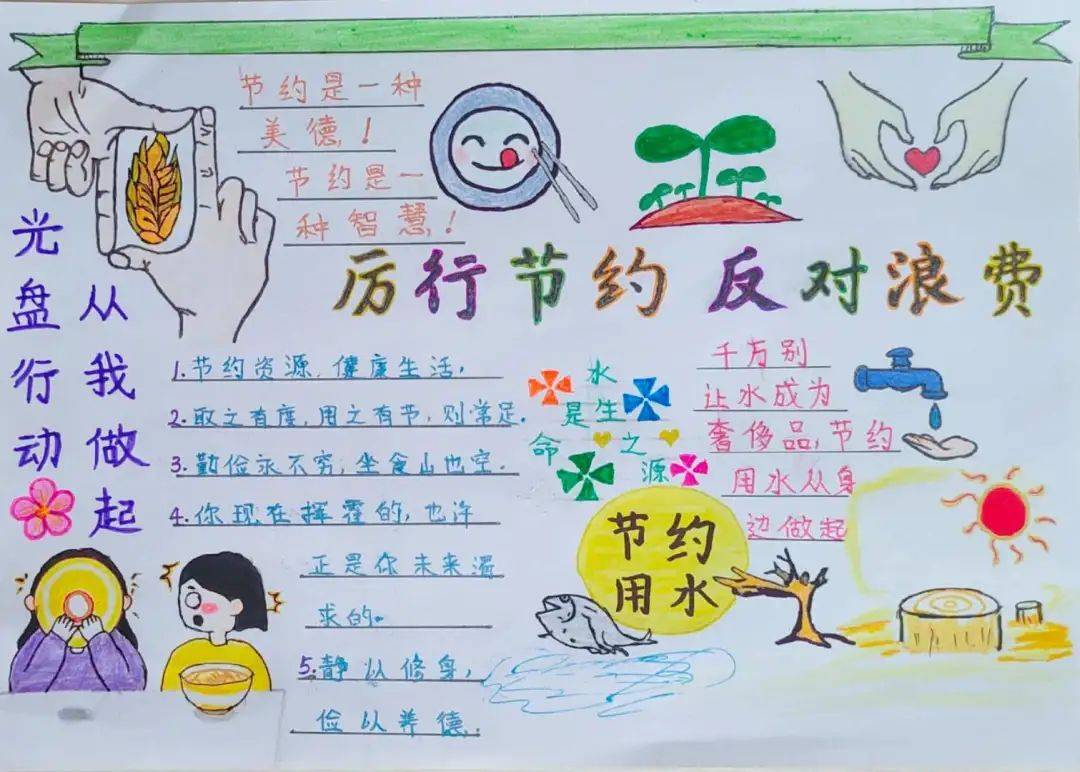 节约是一种
美德！
节约是一
种智慧！
光盘行动
从我做起
厉行节约 反对浪费
1.节约资源，健康生活，
2.取之有度，用之有节，则常足。
3.勤俭永不穷，坐食山也空。
4.你现在挥霍的，也许
正是你未来渴
求的。
5.静以修身，
俭以养德。
水
是生
命之
源
千万别
让水成为
奢侈品，节约
用水从身
边做起
节约
用水